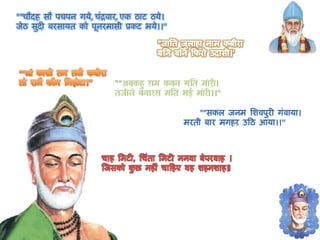 ""चौदह सौ पचपन गये, चंद्रवार, एक ठाट ठये।
जेठ सुदी बरसायत को पूनरमासी प्रकट भये।।"
"जाति जुलाहा नाम कबीरा
बनि बनि फिरो उदासी।"
""जो काशी तन तजै कबीरा
तो रामै कौन निहोटा।"
""अबकहु राम कवन गति मोरी।
तजीले बनारस मति भई मोरी।।"
""सकल जनम शिवपुरी गंवाया।
मरती बार मगहर उठि आया।।"
चाह मिटी, चिंता मिटी मनवा बेपरवाह ।
जिसको कुछ नहीं चाहिए वह शहनशाह॥